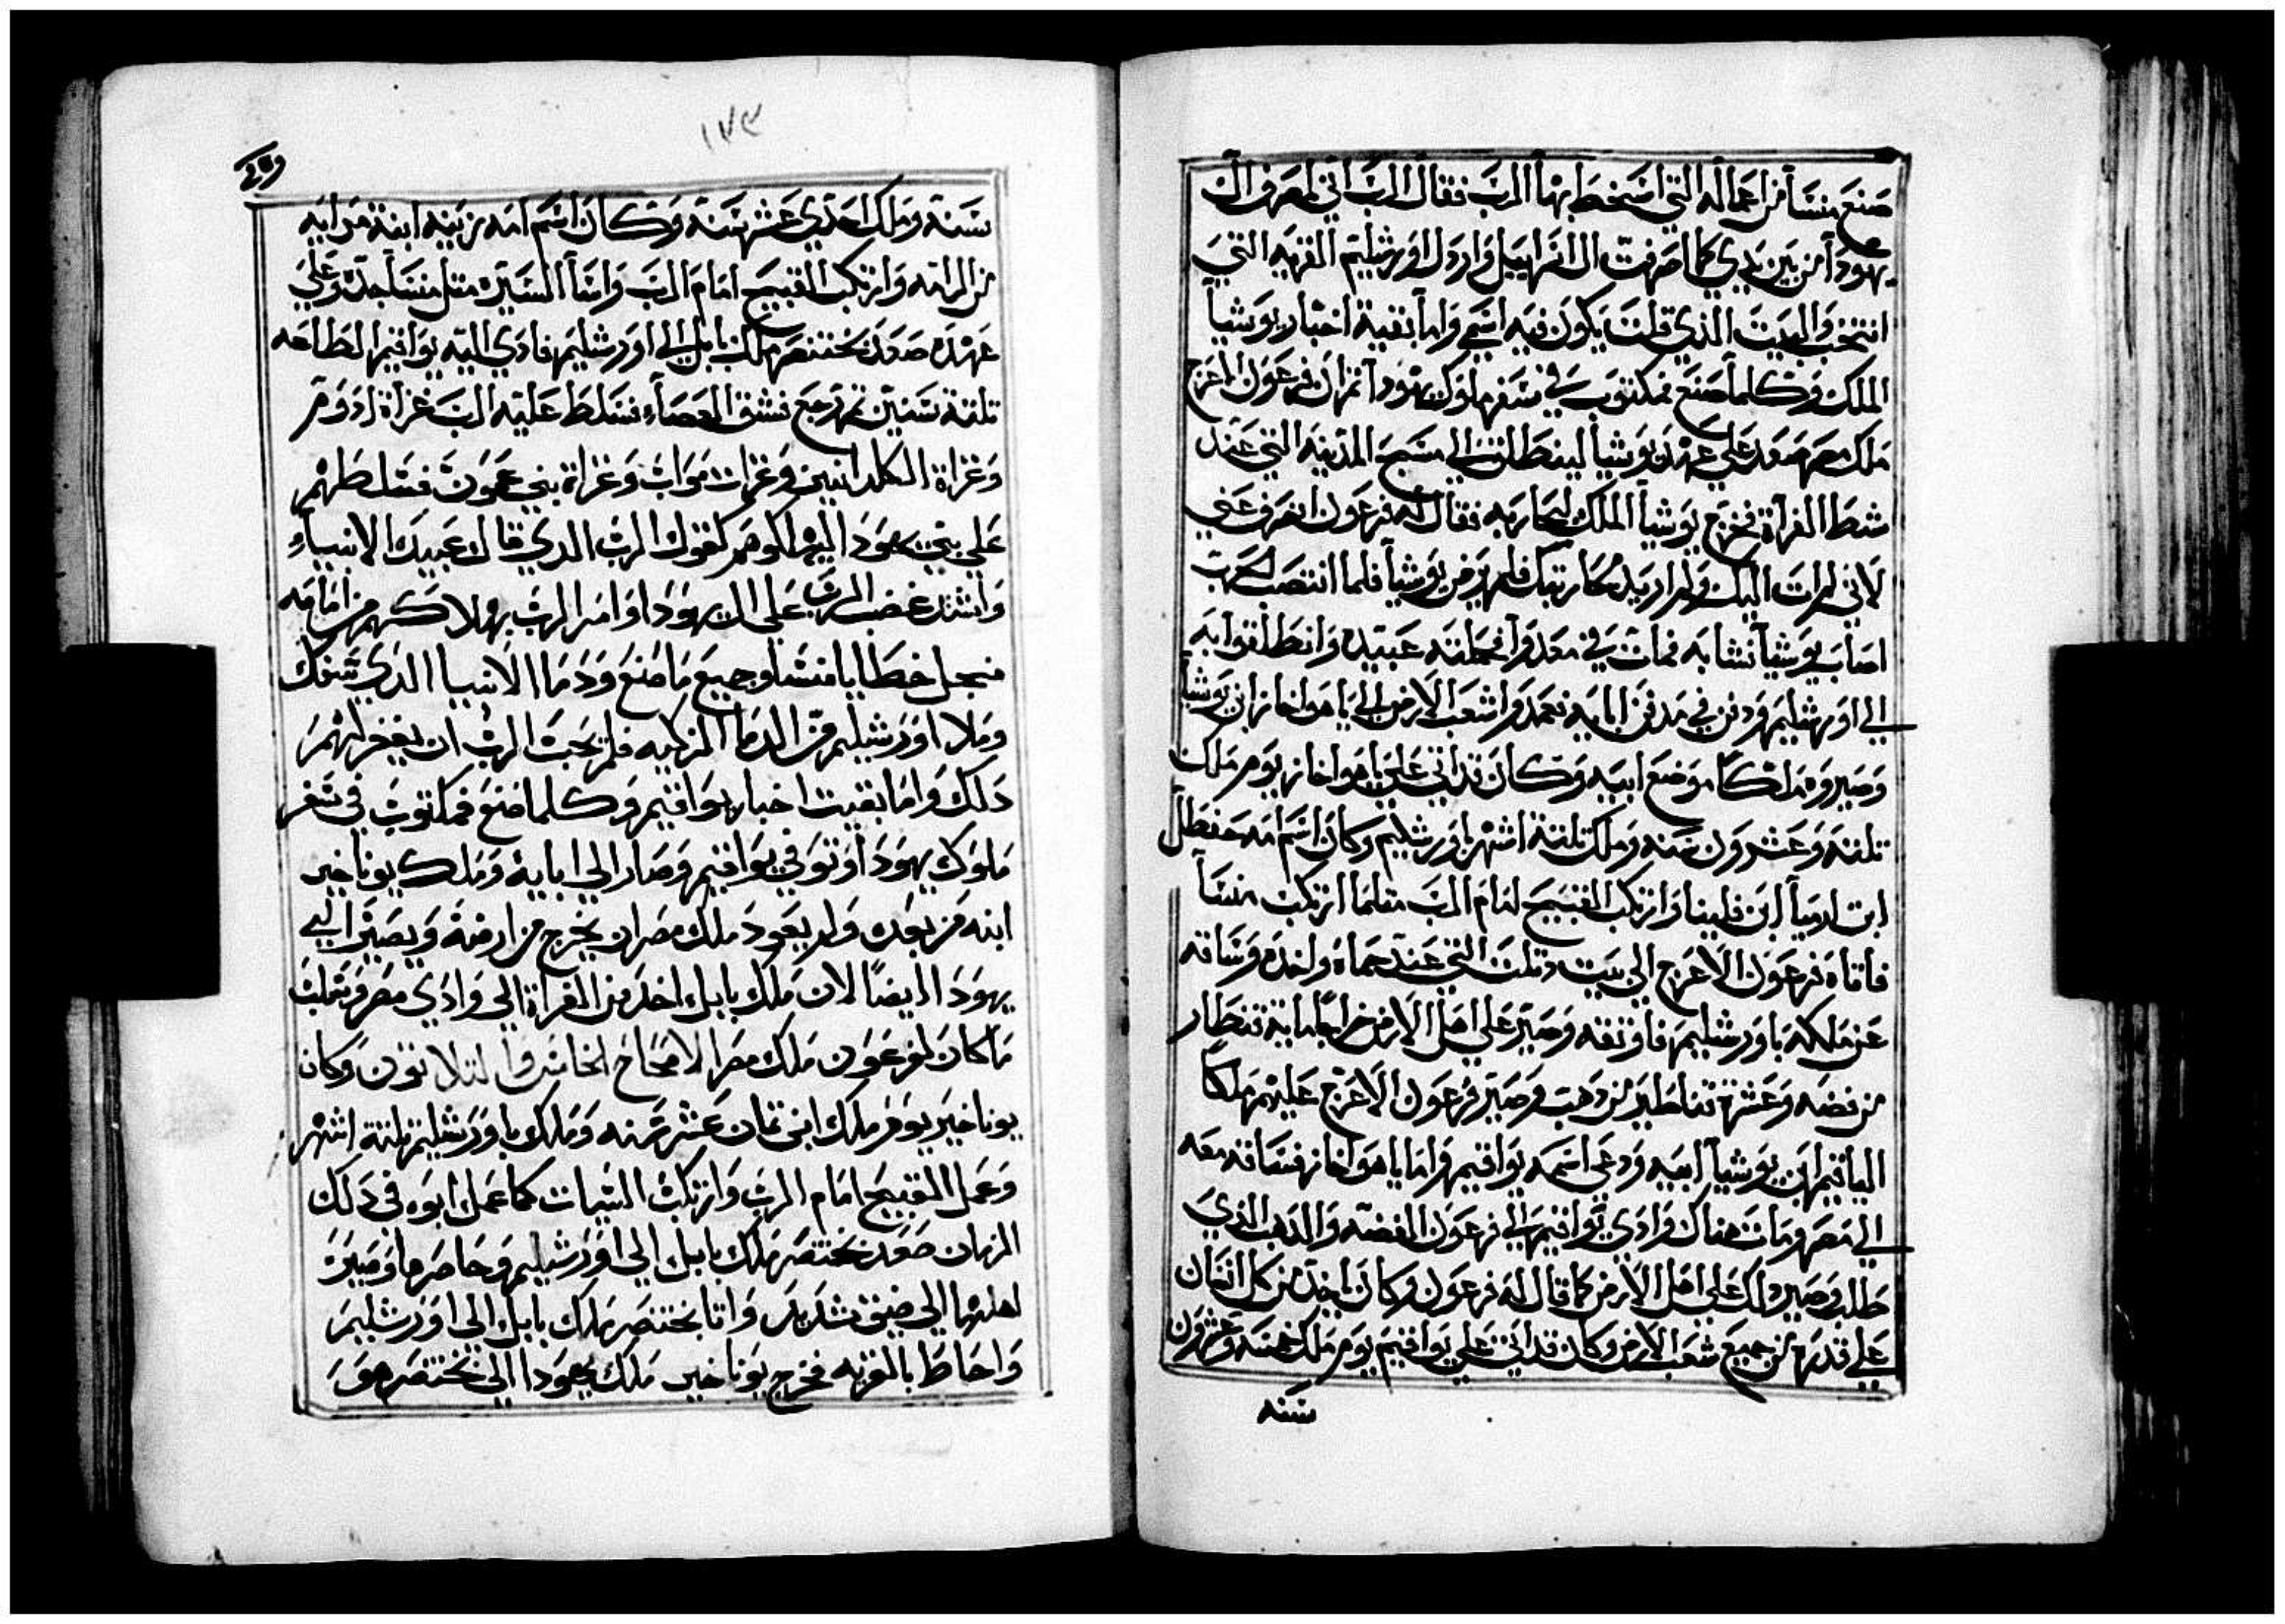 صنع منسا من اعماله التي اسخط بهما الرب فقال الرب اني لصرف ال
يهودا من بين يدي كما صرفت ال اسراييل وارذل اورشليم القريه التي
انتخب والبيت الذي قلت يكون فيه اسمي واما بقية اخبار يوشيا
الملك وكلما صنع فمكتوب في سفر ملوك يهودا ثم ان فرعون الاعرج
ملك مصر صعد علي عهد يوشيا لينطلق الي منبج المدينه التي عند
شط الفراة فخرج يوشيا الملك ليحاربه فقال له فرعون انصرف عني
لاني لم ات اليك ولم اريد محاربتك فلم يومن يوشيا فلما انتصب
اصاب يوشيا نشابه فمات في معدوا فحملته عبيده وانطلقوا به
الي اورشليم ودفن في مدفن ابايه فعمدوا شعب الارض الي ياهواخاز ابن يوشيا
وصيروه ملكا موضع ابيه وكان قد اتي علي ياهواخاز يوم ملك
تلتة وعشرون سنه وملك تلتة اشهر باورشليم وكان اسم امه حفطال
ابت ارميا ابن فلينا وارتكب القبيح امام الرب مثلما ارتكب منسا
فاتاه فرعون الاعرج الي بيت دتلت التي عند حماة واخده وساقه
عن ملكه باورشليم فاوثقه وصير علي اهل الارض خراجا مايه قنطار
من فضه وعشرة قناطير من دهب وصير فرعون الاعرج عليهم ملكا
الياقيم ابن يوشيا ابيه ودعي اسمه يواقيم واما ياهواخاز فساقه معه
الي مصر ومات هناك وادي يواقيم الي فرعون الفضه والدهب الذي
طلب وصير دلك علي اهل الارض كما قال له فرعون وكان ياخد من كل انسان
علي قدره من جميع شعب الارض وكان قد اتي علي يواقيم يوم ملك خمسه وعشرون
سنه
١٧٩
سنة وملك احدي عشر سنة وكان اسم امه زبينه ابنة مدايه
من الرامه وارتكب القبيح امام الرب واسا السيره مثل منسا جده وعلي
عهده صعد بختنصر ملك بابل الي اورشليم فادي اليه يواقيم الطاعه
تلتة سنين ثم رجع فشق العصاء فسلط عليه الرب غزاة ادوم
وغزاة الكلدانيين وغزات مواب وغزاة بني عمون فسلطهم
علي بني يهودا ليهلكوهم كقول الرب الدي قال عبيدك الانبياء
واشتد غضب الرب علي ال يهودا وامر الرب بهلاكهم من امامه
منجل خطايا منسا وجميع ما صنع ودما الانبيا الدي سفك
وملا اورشليم من الدما الزكيه فلم يحب الرب ان يغفر لهم
دلك واما بقيت اخبار يواقيم وكلما صنع فمكتوب في سفر
ملوك يهودا وتوفي يواقيم وصار الي ابايه وملك يوناخير
ابنه من بعده ولم يعود ملك مصر ان يخرج من ارضه ويصير الي
يهودا ايضا لان ملك بابل اخد من الفراة الي وادي مصر
ما كان لفرعون ملك مصر الاصحاح الخامس والتلاتون وكان
يوناخير يوم ملك ابن تمان عشر سنه وملك باورشليم تلتة اشهر
وعمل القبيح امام الرب وارتكب السيات كما عمل ابوه في دلك
الزمان صعد بختنصر ملك بابل الي اورشليم وحاصرها وصيرت
اهلها الي ضيق شديد واتا بختنصر ملك بابل الي اورشليم
واحاط بالقريه فخرج يوناخير ملك يهودا الي بختنصر هو